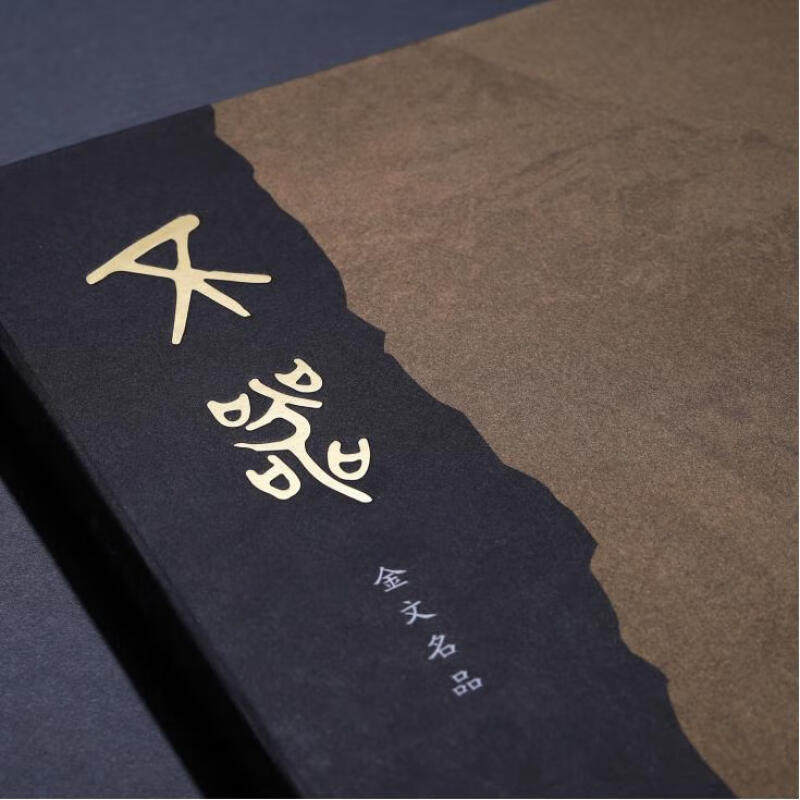 不器
金文名品